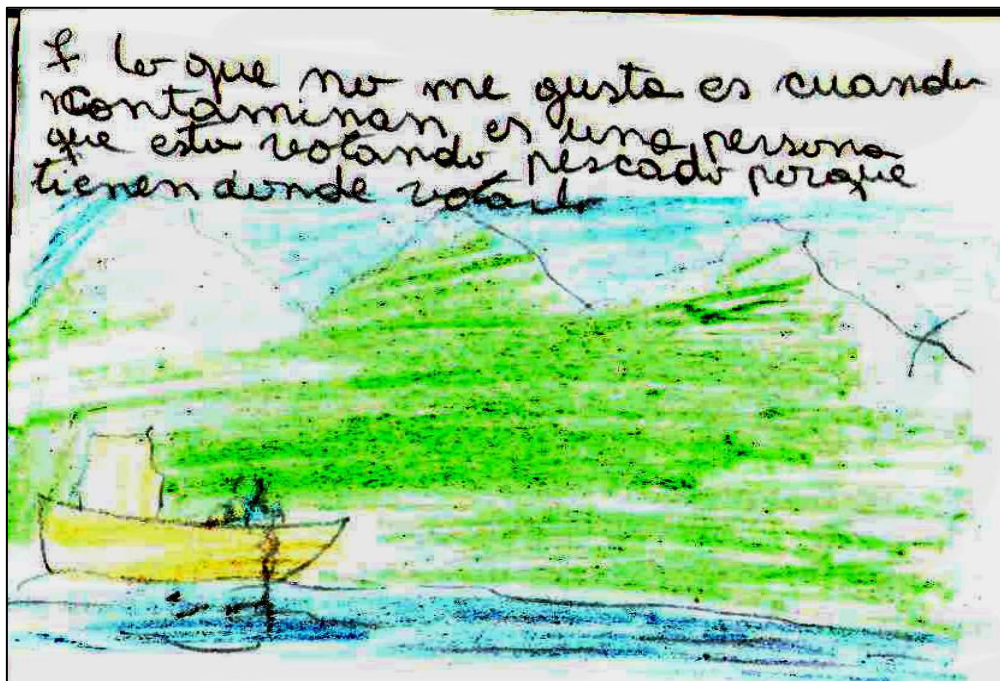 lo que no me gusta es cuando
contaminan, es una persona
que esta votando pescado porque
tienen donde votarlo